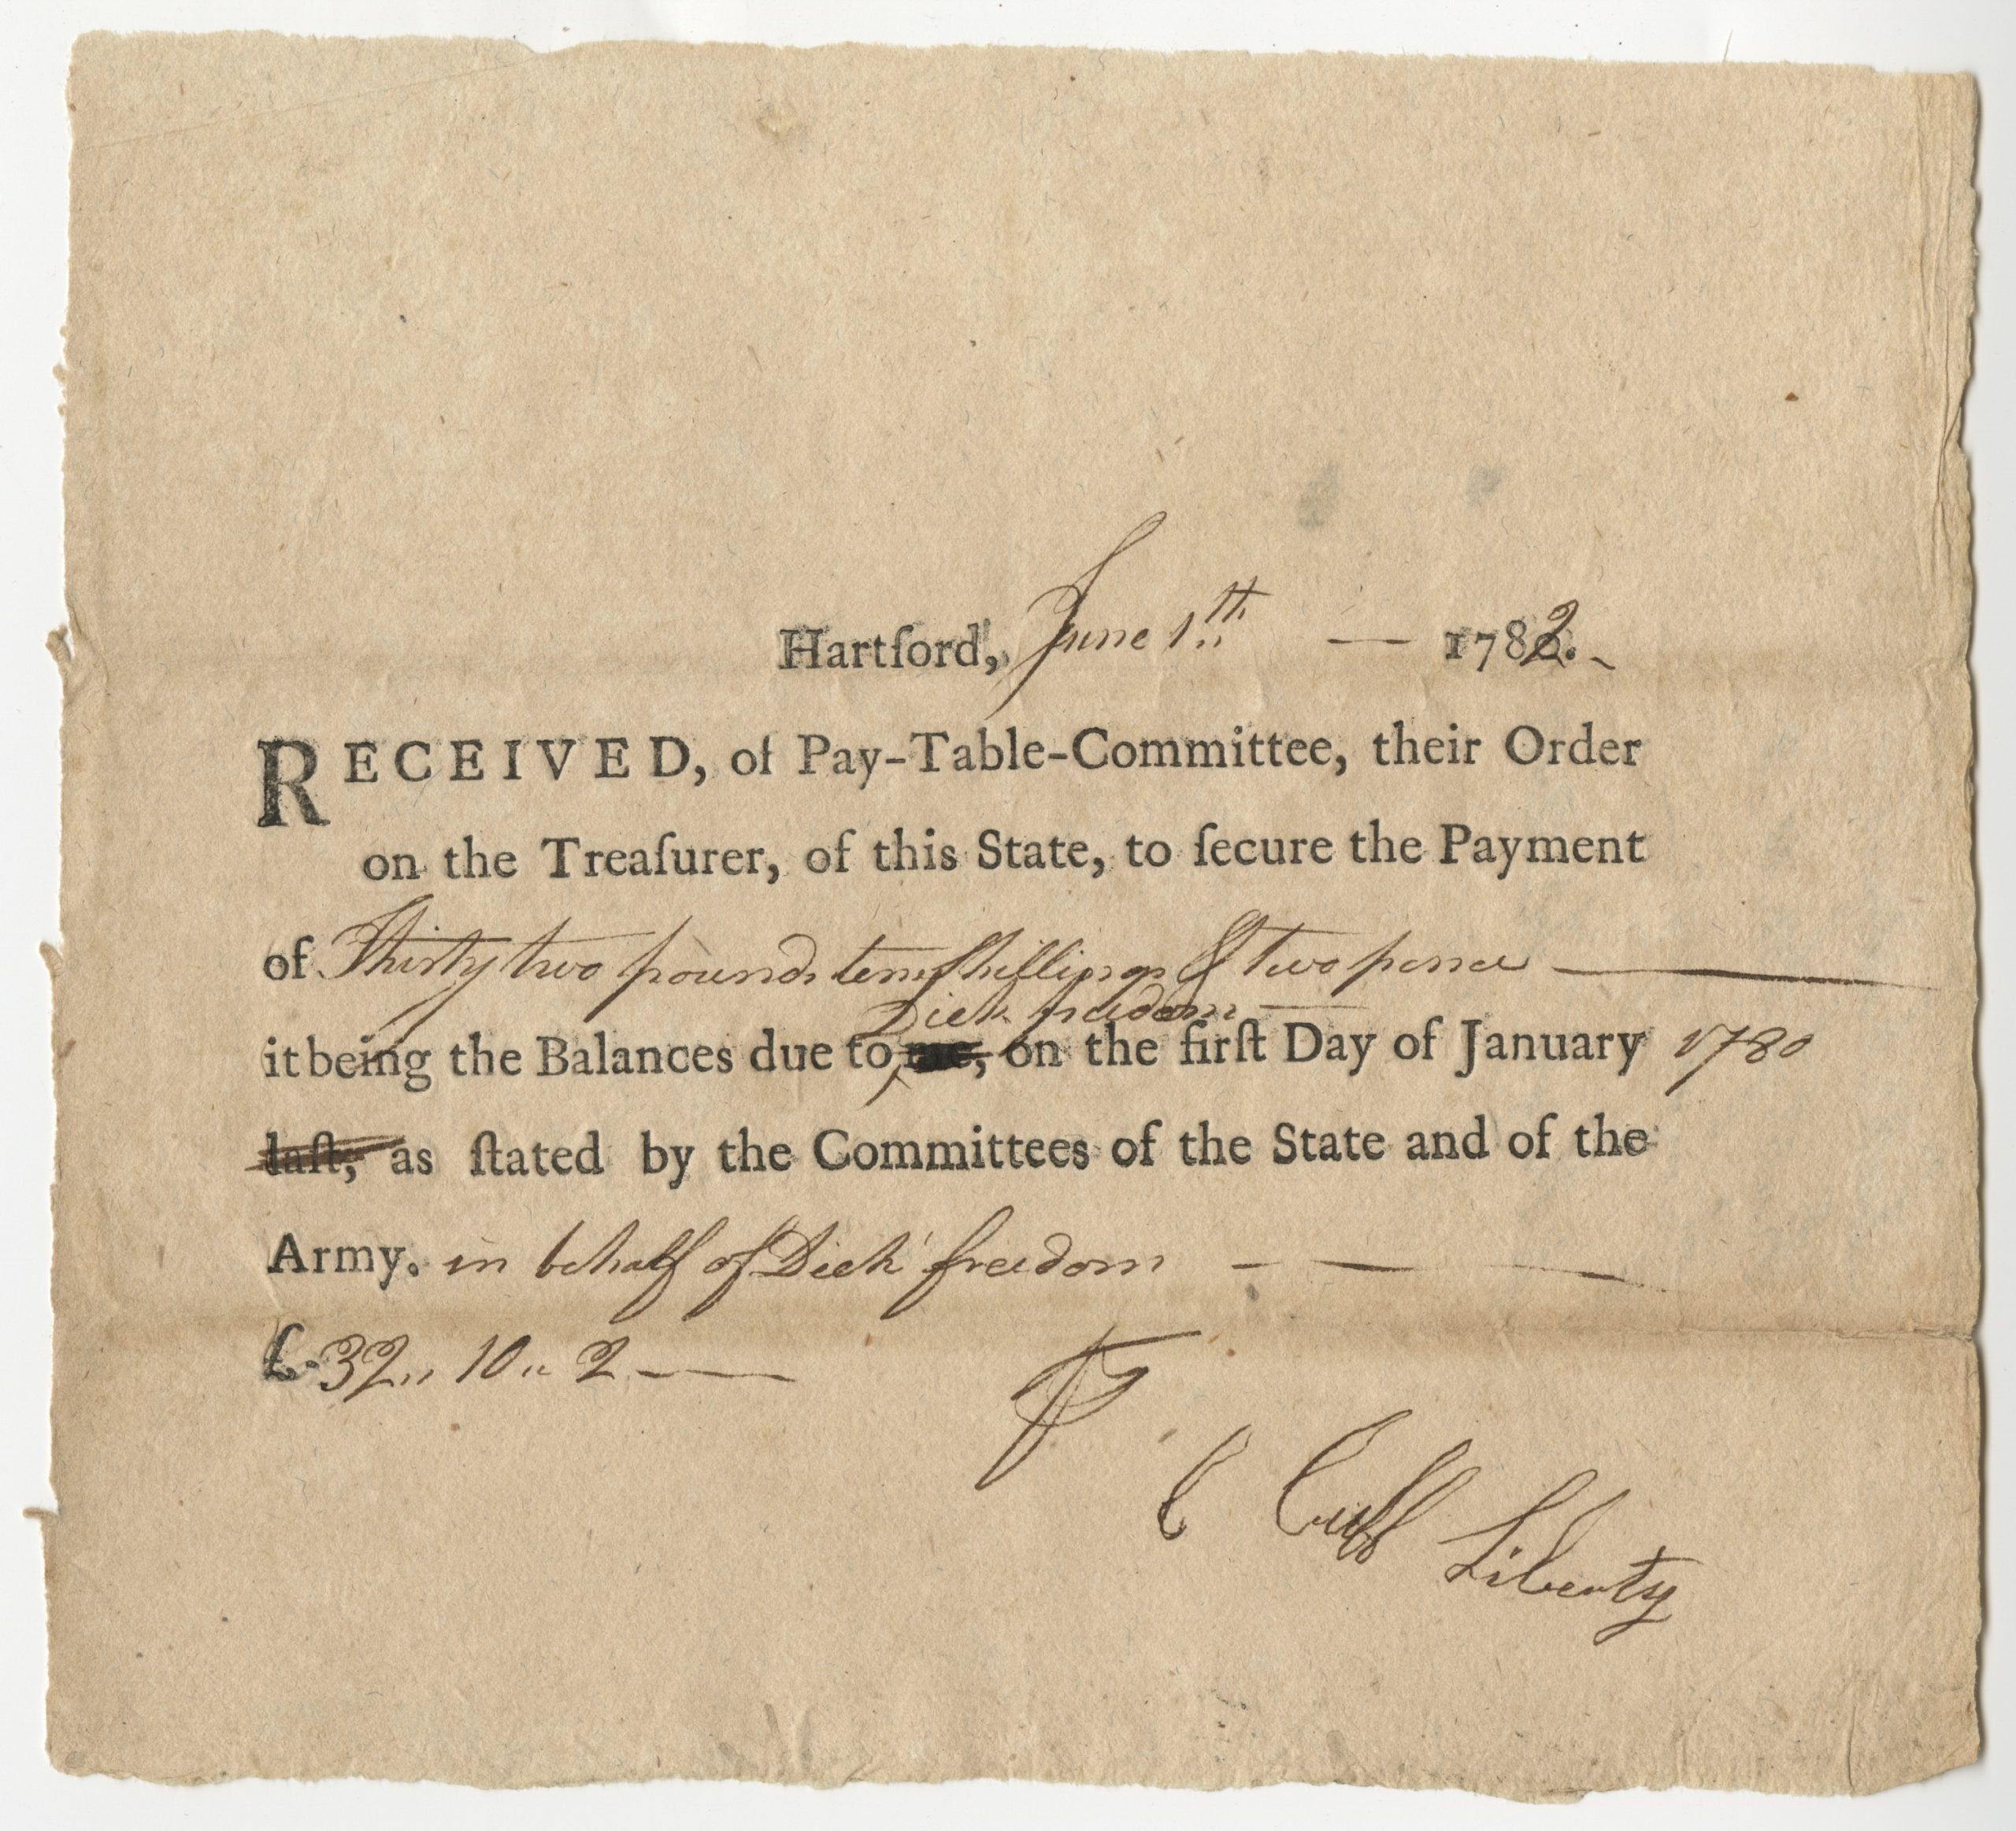 Hartford, June 1th — 1782.
RECEIVED, of Pay-Table-Committee, their Order
on the Treaſurer, of this State, to ſecure the Payment
of Thirty two pounds ten ſhillings & two pence —
Dick freedom —
it being the Balances due to me, on the firſt Day of January 1780
laſt, as ſtated by the Committees of the State and of the
Army. in behalf of Dick freedom — — —
£.32,, 10,, 2 —
Cuff Liberty